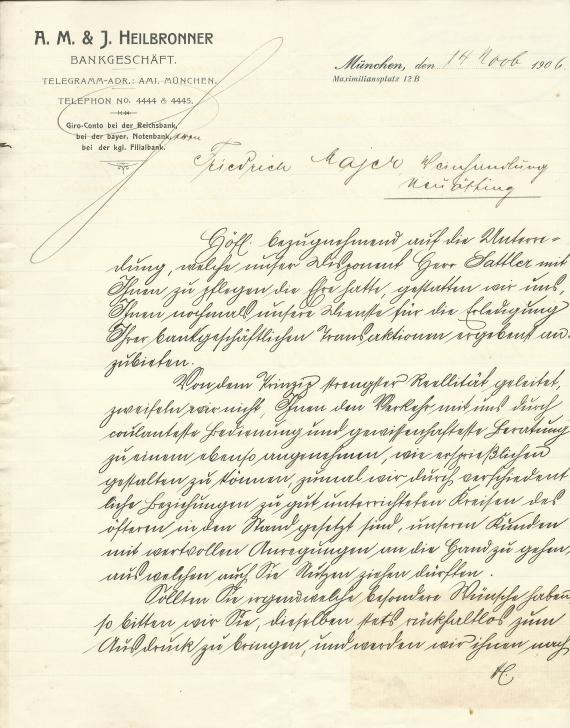 A. M. & J. HEILBRONNER
BANKGESCHÄFT.
TELEGRAMM-ADR.: AMI, MÜNCHEN.
TELEPHON No. 4444 & 4445.
Giro-Conto bei der Reichsbank,
bei der bayer. Notenbank,
bei der kgl. Filialbank.
München, den 14 Novb 1906.
Maximiliansplatz 12 B
Friedrich Majer, Weinhandlung
Neuötting
Höfl. bezugnehmend auf die Unterre-
dung, welche unser Disponent Herr Sattler mit
Ihnen zu pflegen die Ehre hatte, gestatten wir uns,
Ihnen nochmals unsere Dienste für die Erledigung
Ihrer bankgeschäftlichen Transaktionen ergebenst an-
zubieten.
Von dem Prinzip strengster Reellität geleitet,
zweifeln wir nicht, Ihnen den Verkehr mit uns durch
coulanteste Bedienung und gewissenhafteste Beratung
zu einem ebenso angenehmen, wie ersprießlichen
gestalten zu können, zumal wir durch verschiedent-
liche Beziehungen zu gut unterrichteten Kreisen des
öfteren in den Stand gesetzt sind, unseren Kunden
mit wertvollen Anregungen an die Hand zu gehen,
aus welchen auch Sie Nutzen ziehen dürften.
Sollten Sie irgendwelche besondere Wünsche haben,
so bitten wir Sie, dieselben stets rückhaltlos zum
Ausdruck zu bringen, und werden wir ihnen nach